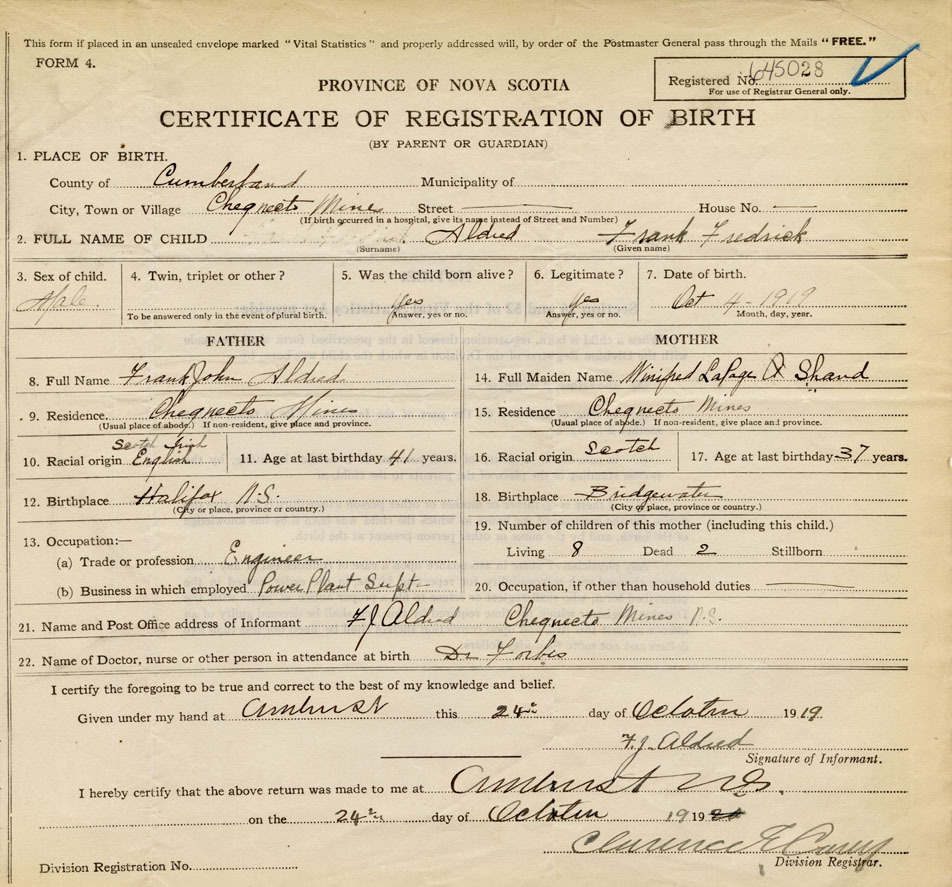 This form if placed in an unsealed envelope marked "Vital Statistics" and properly addressed will, by order of the Postmaster General pass through the Mails "FREE."
FORM 4.
Registered No. 645028
For use of Registrar General only.
PROVINCE OF NOVA SCOTIA
CERTIFICATE OF REGISTRATION OF BIRTH
(BY PARENT OR GUARDIAN)
1. PLACE OF BIRTH.
County of Cumberland Municipality of
City, Town or Village Cheqnecto Mines Street House No.
(If birth occurred in a hospital, give its name instead of Street and Number)
2. FULL NAME OF CHILD Aldred Frank Fredrick
(Surname) (Given name)
3. Sex of child. 4. Twin, triplet or other? 5. Was the child born alive? 6. Legitimate? 7. Date of birth.
Male. Yes Yes Oct 4 - 1919
To be answered only in the event of plural birth. Answer, yes or no. Answer, yes or no. Month, day, year.
FATHER MOTHER
8. Full Name Frank John Aldred 14. Full Maiden Name Winifred LaPage Shand
9. Residence. Cheqnecto Mines 15. Residence Cheqnecto Mines
(Usual place of abode.) If non-resident, give place and province. (Usual place of abode.) If non-resident, give place and province.
Scotch Irish
10. Racial origin English 11. Age at last birthday 41 years. 16. Racial origin Scotch 17. Age at last birthday 37 years.
12. Birthplace Halifax N.S. 18. Birthplace Bridgewater
(City or place, province or country.) (City or place, province or country.)
13. Occupation:— 19. Number of children of this mother (including this child.)
(a) Trade or profession Engineer Living 8 Dead 2 Stillborn
(b) Business in which employed Power Plant Supt- 20. Occupation, if other than household duties
21. Name and Post Office address of Informant F J Aldred Cheqnecto Mines N.S.
22. Name of Doctor, nurse or other person in attendance at birth Dr Forbes
I certify the foregoing to be true and correct to the best of my knowledge and belief.
Given under my hand at Amherst this 24 day of October 1919.
F.J. Aldred
Signature of Informant.
I hereby certify that the above return was made to me at Amherst N.S.
on the 24 day of October 19 19
Clarence
Division Registration No. Division Registrar.